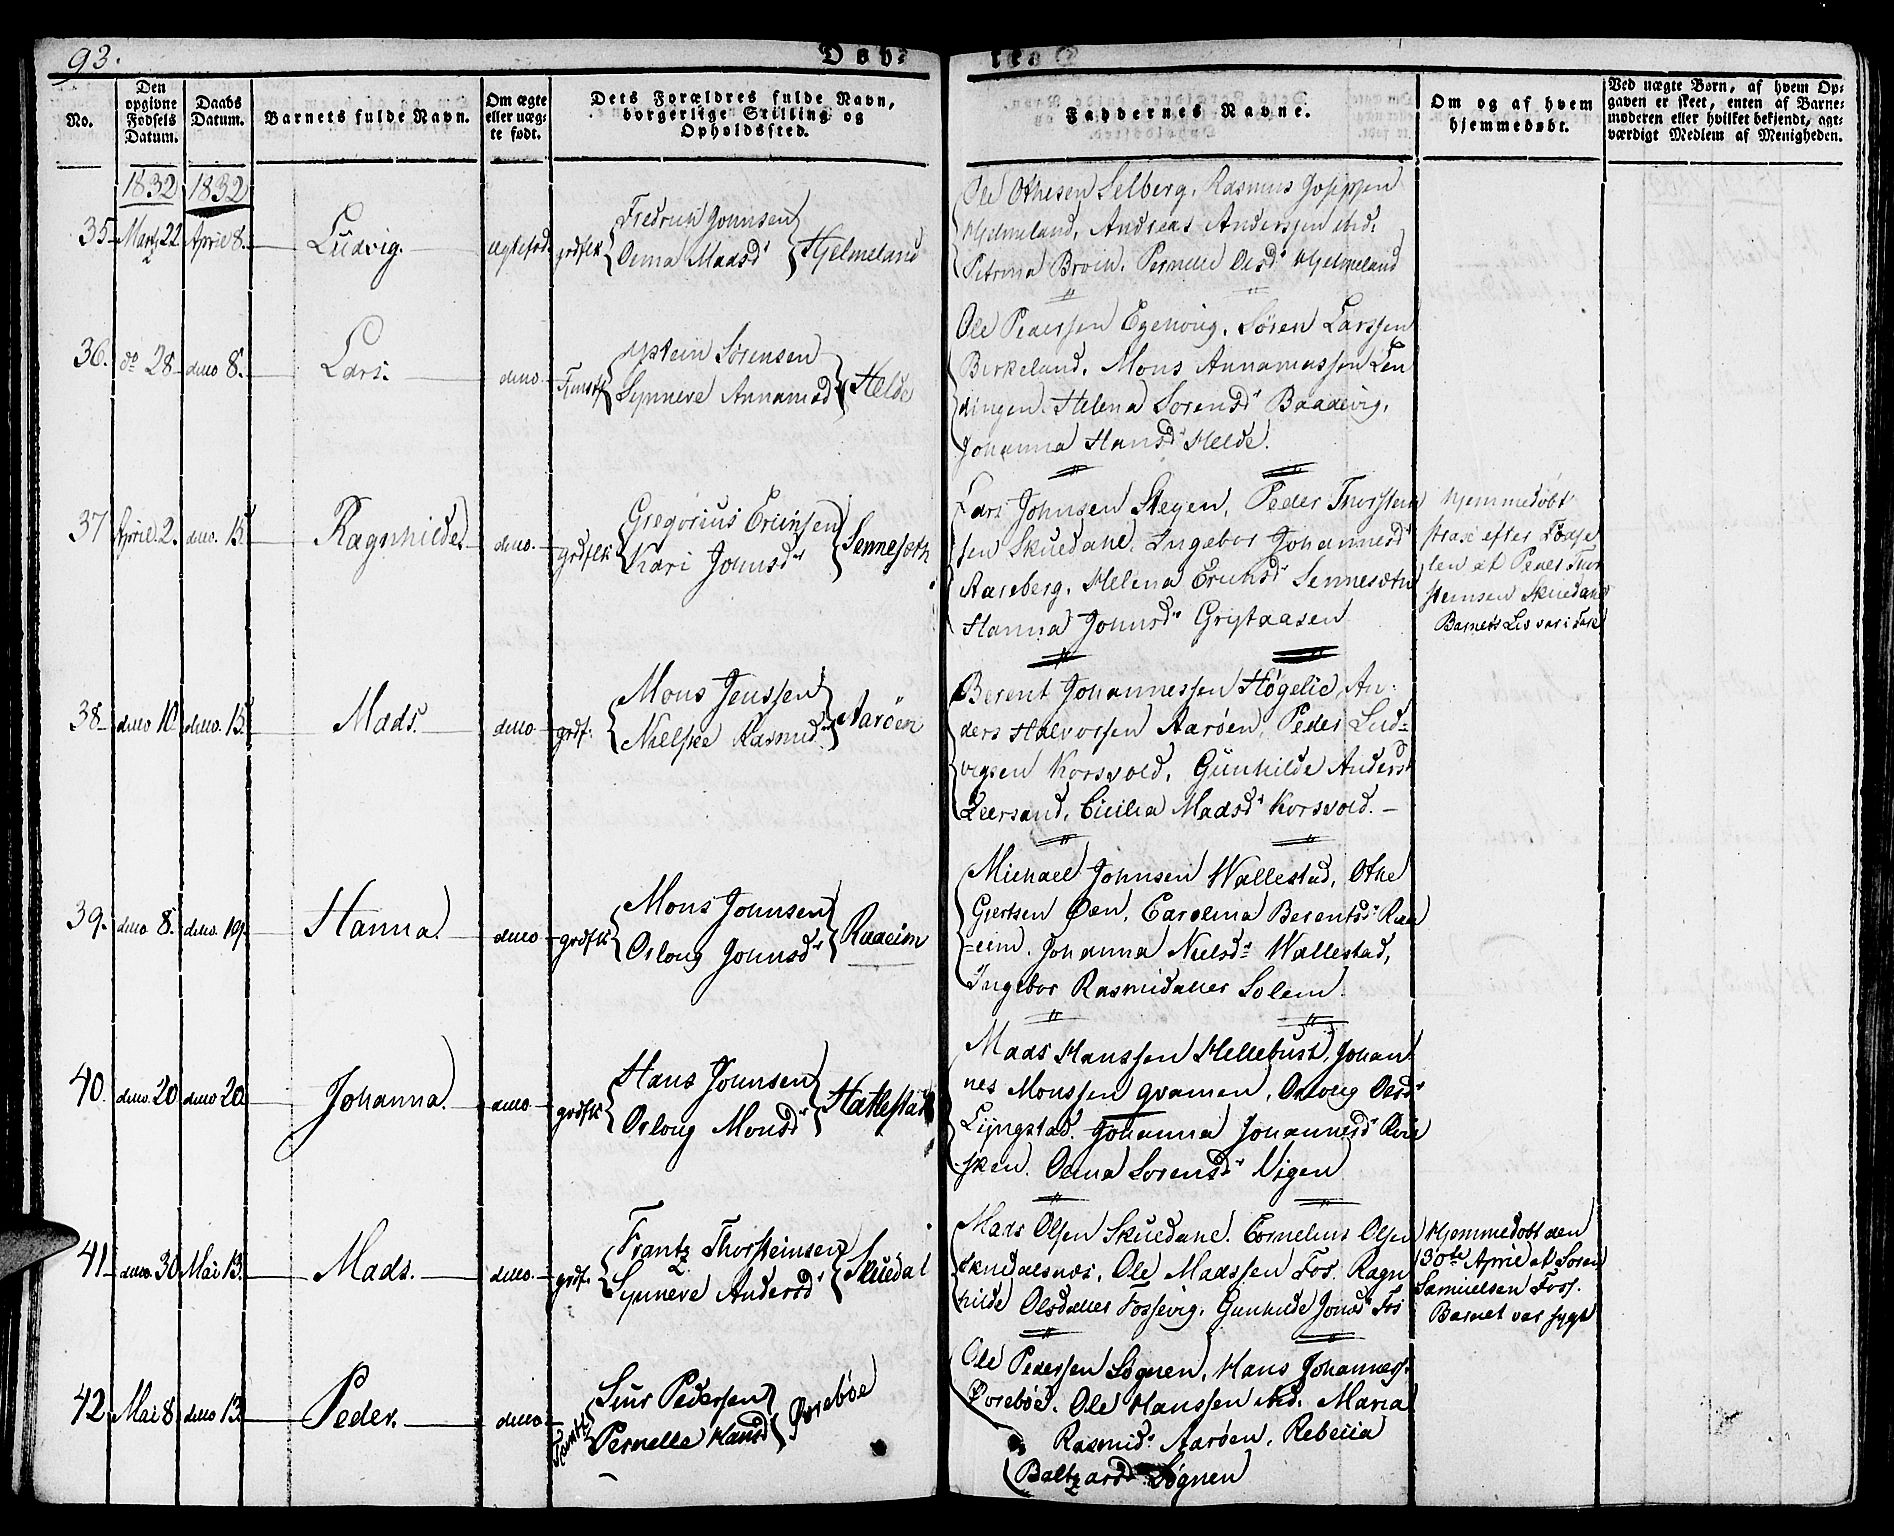 93.
Døb-
te.
No.
Den opgivne Fødsels Datum.
Daabs Datum.
Barnets fulde Navn.
Om ægte eller uægte født.
Dets Forældres fulde Navn, borgerlige Stilling og Opholdssted.
Faddernes Navne.
Om og af hvem hjemmedøbt.
Ved uægte Børn, af hvem Opgaven er skeet, enten af Barnemoderen eller hvilket bekjendt, agtværdigt Medlem af Menigheden.
1832 1832
35 Marts 22 April 8. Ludvig. ægtefød. grdflk
Fredrick Johnsen
Oema Madsd. Hjelmeland
Ole Othesen Selberg, Rasmus
Hjelmeland, Andreas Anderssen ibid.
Petrina Broin, Pernelle Olsd. Hjelmeland
36. do 28 dito 8. Lars. dito
Østein Sørensen
Synneve Annamsd. Helde
Ole Pederssen Egehoug, Søren Larssen
Birkeland, Mons Annamssen Len
dingen. Helena Sorensd. Baadevig,
Johanna Hansd. Helde.
37 April 2. dito. 15. Ragnhilde. dito. grdflk
Gregorius Erichsen
Kari Johnsd. Sennesæth
Lars Johnsen Stegen, Peder Thorstein
sen Skuedahl, Ingebor Johannesd.
Aareberg, Helena Erichsd. Sennesæth
Hanna Johnsd. Grytaasen
Hjemmedøbt
strax efter Fødse
len af Peder Thor
steinsen Skuedahl
Barnets Liv var i Fare
38 dito 10 dito. 15. Mads. dito grdf.
Mons Jenssen
Nielske Rasmusd. Aarøen
Berent Johannessen Høgelie, An-
ders Halvorsen Aarøen, Peder Lud-
vigsen Korsvold, Gunhilde Andersd.
Leersand, Cicilia Madsd. Korsvold. -
39. dito 8. dito. 19. Hanna. dito grdflk
Mons Johnsen
Osloug Johnsd. Raaeim
Michael Johnsen Wallestad, Othe
Giertsen Øen, Carolina Berentsd. Raa
=eim. Johanna Nielsd. Wallestad,
Ingebor Rasmusdatter Solem.
40. dito. 20 dito 20. Johanna. dito grdflk
Hans Johnsen
Osloug Monsd. Hatlestad
Mads Hanssen Hellebust, Johan
nes Monssen Qvamen, Osloug Olsd.
Lyngstad. Johanna Johannesd.
sken. Oema Sorensd. Vigen
41 dito 30 Mai 13. Mads. dito. grdf.
Frantz Thorsteinsen
Synneve Andersd. Skuedal
Mads Olsen Skuedahl. Cornelius Olsen
Skuedalsnæs, Ole Madssen Fos. Ragn
hilde Olsdatter Fossevig. Gunhilde Jonsd. Fos
Hjemmedøbt den
30te April af Søren
Samuelsen Foss.
Barnet var sygt
42 Mai 8. dito 13. Peder. dito
Siur Pedersen
Pernelle Hansd. Ørebøe
Ole Pederssen Sognen, Hans Johanness.
Ørebøe. Ole Hanssen ibid. Maria
Rasmusd. Aarøen, Rebecca
Baltzarsd. Sognen